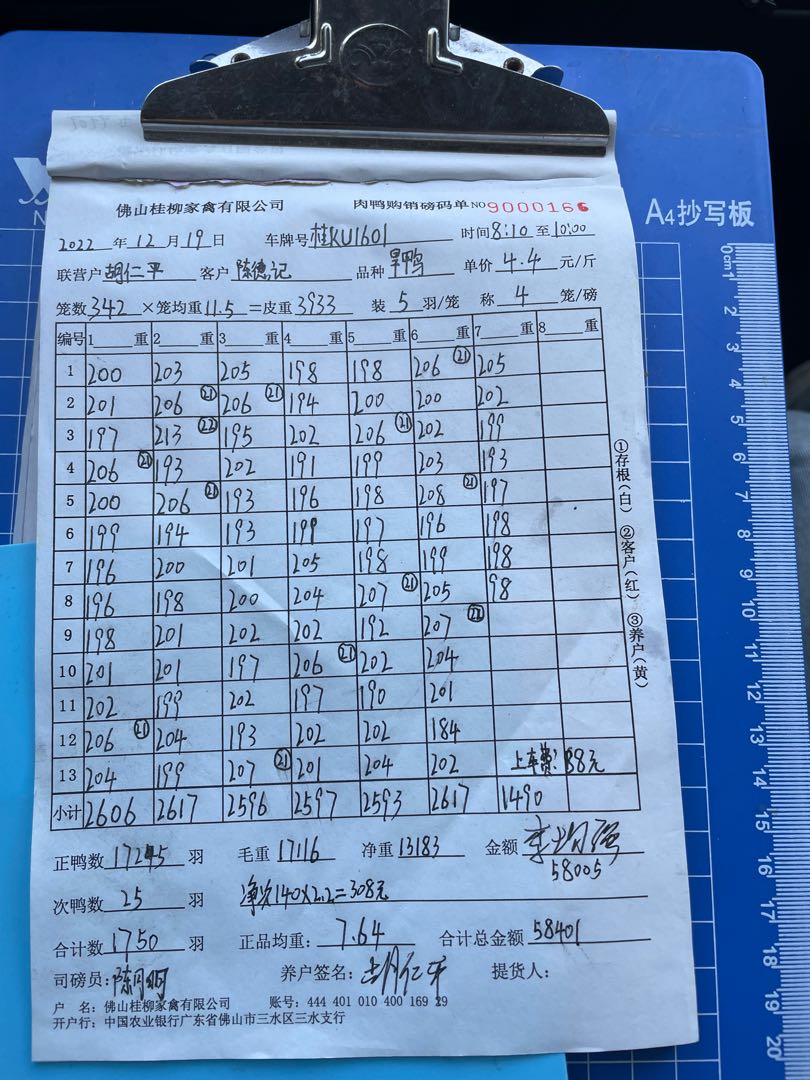 佛山桂柳家禽有限公司 肉鸭购销磅码单 NO 9000166
A4抄写板
2022年12月19日 车牌号 桂KU1601 时间 8:10 至 10:00
联营户 胡仁平 客户 陈德记 品种 旱鸭 单价 4.4 元/斤
笼数 342 ×笼均重 11.5 =皮重 3933 装 5 羽/笼 称 4 笼/磅
编号 1 重 2 重 3 重 4 重 5 重 6 重 7 重 8 重
1 200 203 205 198 198 206 ㉑ 205
2 201 206 ㉑ 206 ㉑ 194 200 200 202
3 197 213 ㉒ 195 202 206 ㉑ 202 199
4 206 ㉑ 193 202 191 199 203 193
5 200 206 ㉑ 193 196 198 208 ㉑ 197
6 199 194 193 199 197 196 198
7 196 200 201 205 198 199 198
8 196 198 200 204 207 ㉑ 205 98
9 198 201 202 202 192 207 ㉒
10 201 201 197 206 ㉑ 202 204
11 202 199 202 197 190 201
12 206 ㉑ 204 193 202 202 184
13 204 199 207 ㉑ 201 204 202 上车费: 88元
小计 2606 2617 2596 2597 2593 2617 1490
①存根(白) ②客户(红) ③养户(黄)
正鸭数 羽 毛重 17116 净重 13183 金额
58005
次鸭数 25 羽 净次140×2.2=308元
合计数 1750 羽 正品均重: 7.64 合计总金额 58401
司磅员: 养户签名: 胡仁平 提货人:
户 名: 佛山桂柳家禽有限公司 账号: 444 401 010 400 169 29
开户行: 中国农业银行广东省佛山市三水区三水支行
0cm 1 2 3 4 5 6 7 8 9 10 11 12 13 14 15 16 17 18 19 20